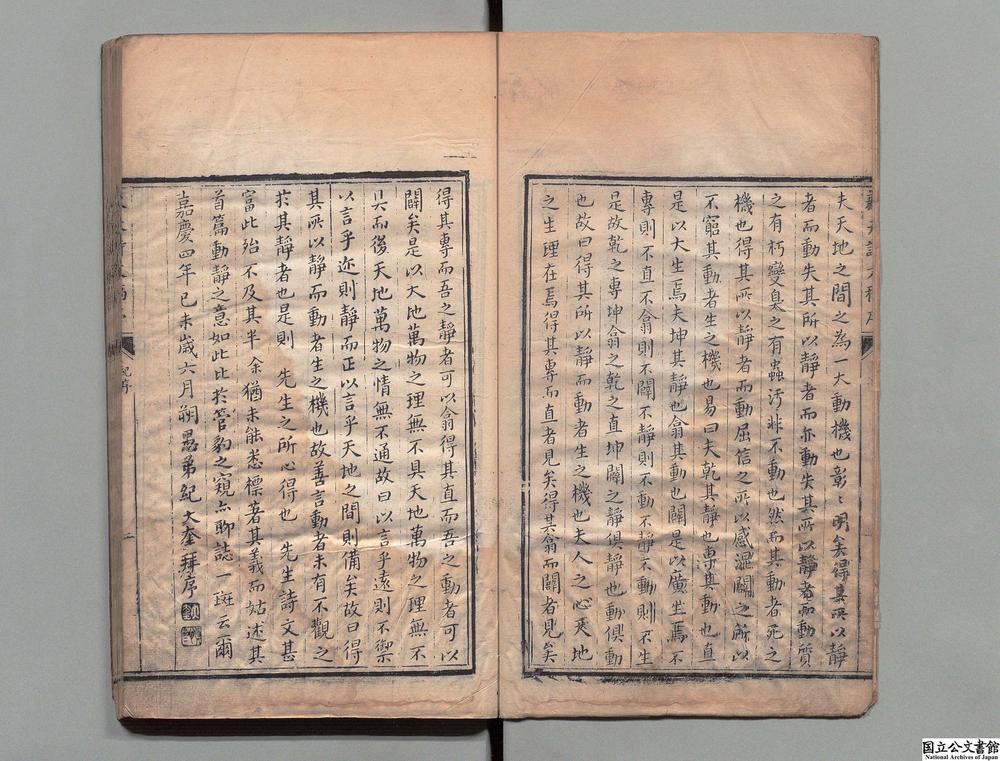 夫天地之間之為一大動機也彰〻明矣得其所以靜
者而動失其所以靜者而亦動失其所以靜者而動質
之有朽變臭之有蟲汚非不動也然而其動者死之
機也得其所以靜者而動屈信之所以感濕闢之所以
不窮其動者生之機也易曰夫乾其靜也專其動也直
是以大生焉夫坤其靜也翕其動也闢是以廣生焉不
專則不直不翕則不闢不靜則不動不靜不動則不生
是故乾之專坤翕之乾之直坤闢之靜俱靜也動俱動
也故曰得其所以靜而動者生之機也夫人之心夾地
之生理在焉得其專而直者見矣得其翕而闢者見矣
得其專而吾之靜者可以翕得其直而吾之動者可以
闢矣是以大地萬物之理無不具天地萬物之理無不
具而後天地萬物之情無不通故曰以言乎遠則不禦
以言乎迩則靜而正以言乎天地之間則備矣故曰得
其所以靜而動者生之機也故善言動者未有不觀之
於其靜者也是則 先生之所心得也 先生詩文甚
富此殆不及其半余猶未能悉標著其義而姑述其
首篇動靜之意如此比於管豹之窺亦聊誌一斑云爾
嘉慶四年己未歲六月朔愚弟紀大奎拜序
紀序
二
国立公文書館
National Archives of Japan